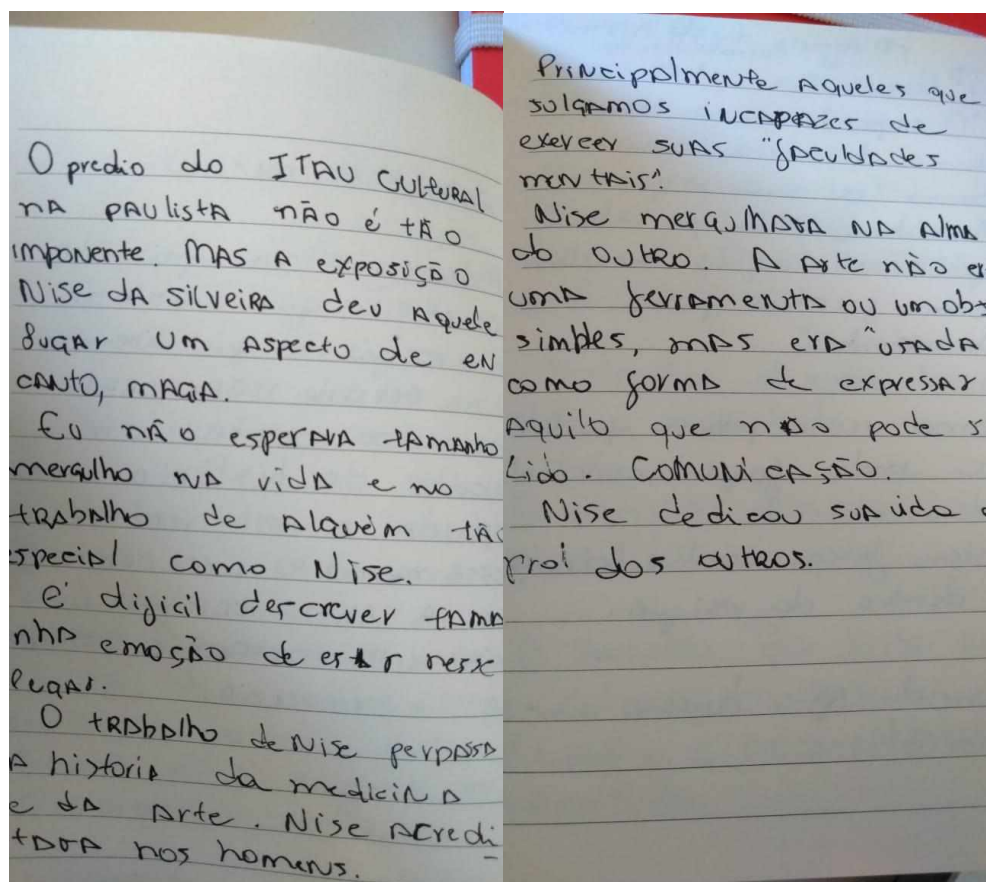 O predio do ITAU CULTURAL
na paulista não é tão
imponente. Mas a exposição
Nise da silveira deu aquele
lugar um aspecto de en
canto, magia.
Eu não esperava tamanho
mergulho na vida e no
trabalho de alguém tão
especial como Nise.
é dificil descrever tama
nha emoção de estar nesse
lugar.
O trabalho de Nise perpassa
a historia da medicina
e da arte. Nise acredi-
tava nos homens.
Principalmente aqueles que
julgamos incapazes de
exercer suas "faculdades
mentais".
Nise mergulhava na alma
do outro. A arte não er
uma ferramenta ou um obj
simples, mas era "usada
como forma de expressar
aquilo que não pode s
Lido. Comunicação.
Nise dedicou sua vida
prol dos outros.